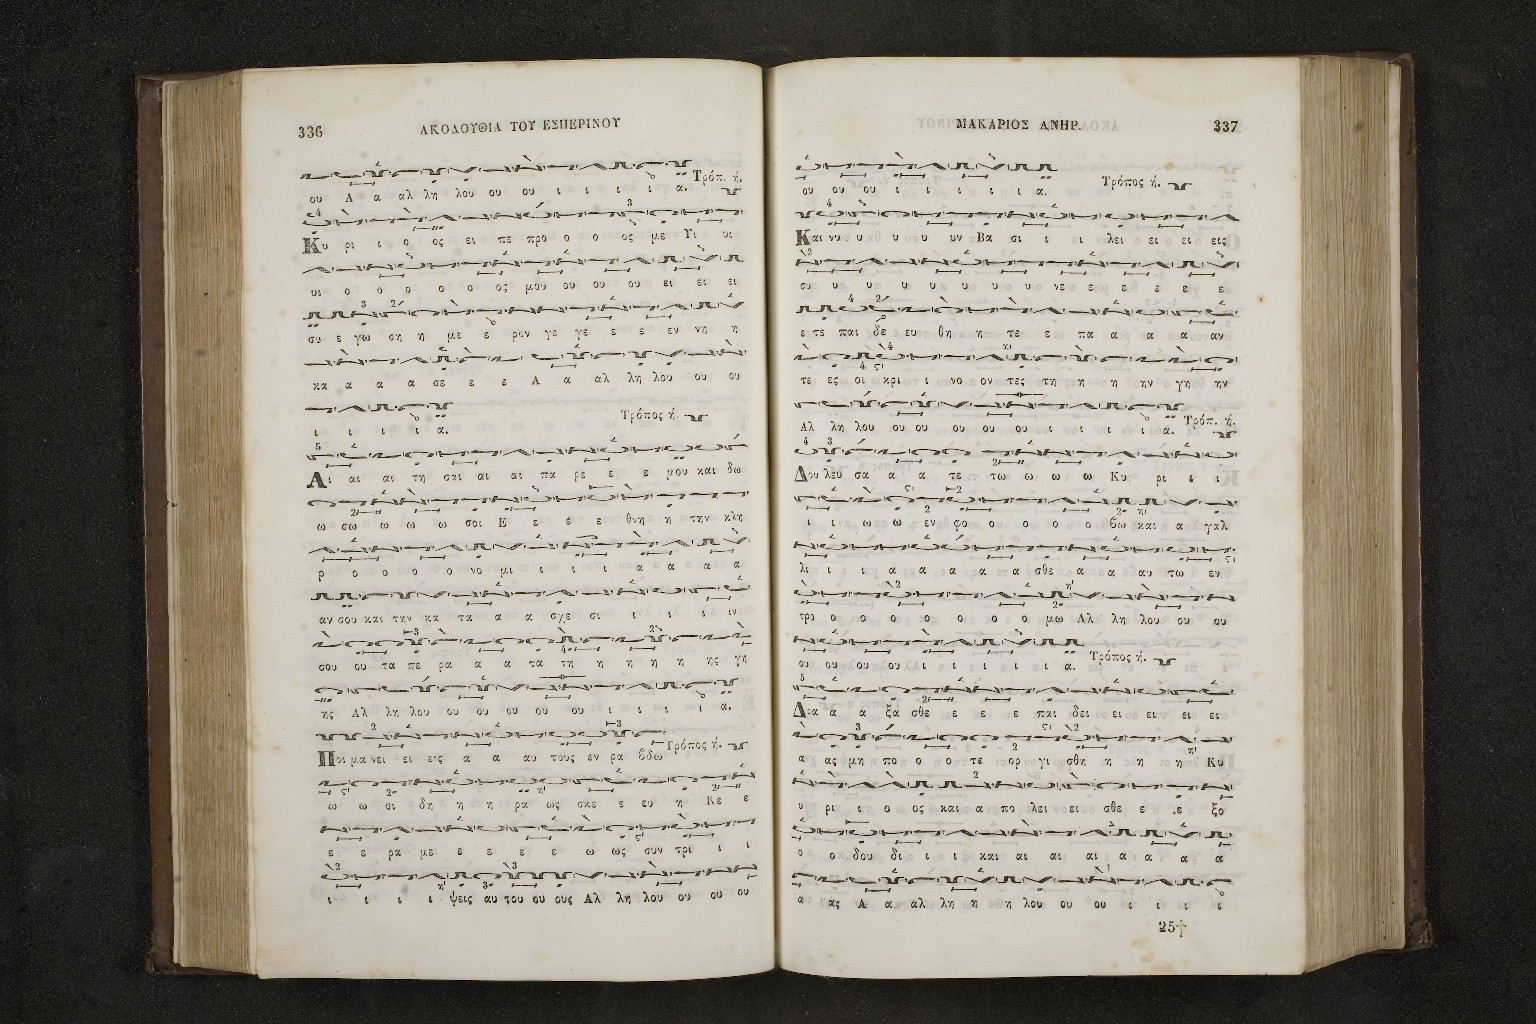 336
ΑΚΟΛΟΥΘΙΑ ΤΟΥ ΕΣΠΕΡΙΝΟΥ
ου Α α αλ λη λου ου ου ι ι ι ι α. Τρόπ. ή.
Κυ ρι ι ο ος ει πε προ ο ο ος με Υι υι
υι ο ο ο ο ο ος μου ου ου ου ει ει ει
συ ε γω ση η με ε ρον γε γε ε ε εν νη η
κα α α α σε ε ε Α α αλ λη λου ου ου
ι ι ι ι α. Τρόπος ή.
Αι αι αι τη σαι αι αι πα ρε ε ε μου και δω
ω σω ω ω ω σοι Ε ε ε ε θνη η την κλη
ρ ο ο ο ο νο μι ι ι ι α α α α
αν σου και την κα τα α α σχε σι ι ι ι ιν
σου ου τα πε ρα α α τα τη η η η η ης γη
ης Αλ λη λου ου ου ου ου ου ι ι ι ι α.
Ποι μα νει ει εις α α αυ τους εν ρα βδω Τρόπος ή.
ω ω σι δη η η ρα ως σκε ε ευ η Κε ε
ε ε ρα με ε ε ε ε ω ως συν τρι ι ι
ι ι ι ι ψεις αυ του ου ους Αλ λη λου ου ου ου
ΜΑΚΑΡΙΟΣ ΑΝΗΡ.
337
ου ου ου ι ι ι ι ι α. Τρόπος ή.
Και νυ υ υ υ υν Βα σι ι ι λει ει ει εις
συ υ υ υ υ υ υ υ νε ε ε ε ε ε
ε τε παι δε ευ θη η τε ε πα α α α αν
τε ες οι κρι ι νο ον τες τη η η ην γη ην
Αλ λη λου ου ου ου ου ου ι ι ι ι α. Τρόπ. ή.
Δου λευ σα α α τε τω ω ω ω Κυ ρι ι ι
ι ι ω ω εν φο ο ο ο ο βω και α γαλ
λι ι ι α α α α α σθε α α αυ τω εν
τρο ο ο ο ο ο ο ο μω Αλ λη λου ου ου
ου ου ου ου ι ι ι ι ι α. Τρόπος ή.
Δρα α α ξα σθε ε ε ε παι δει ει ει ει ει
α ας μη πο ο ο τε ορ γι σθη η η η Κυ
υ ρι ι ο ος και α πο λει ει σθε ε ε ξο
ο ο δου δι ι ι και αι αι αι α α α α
α ας Α α αλ λη η η λου ου ου ι ι ι ι
25†